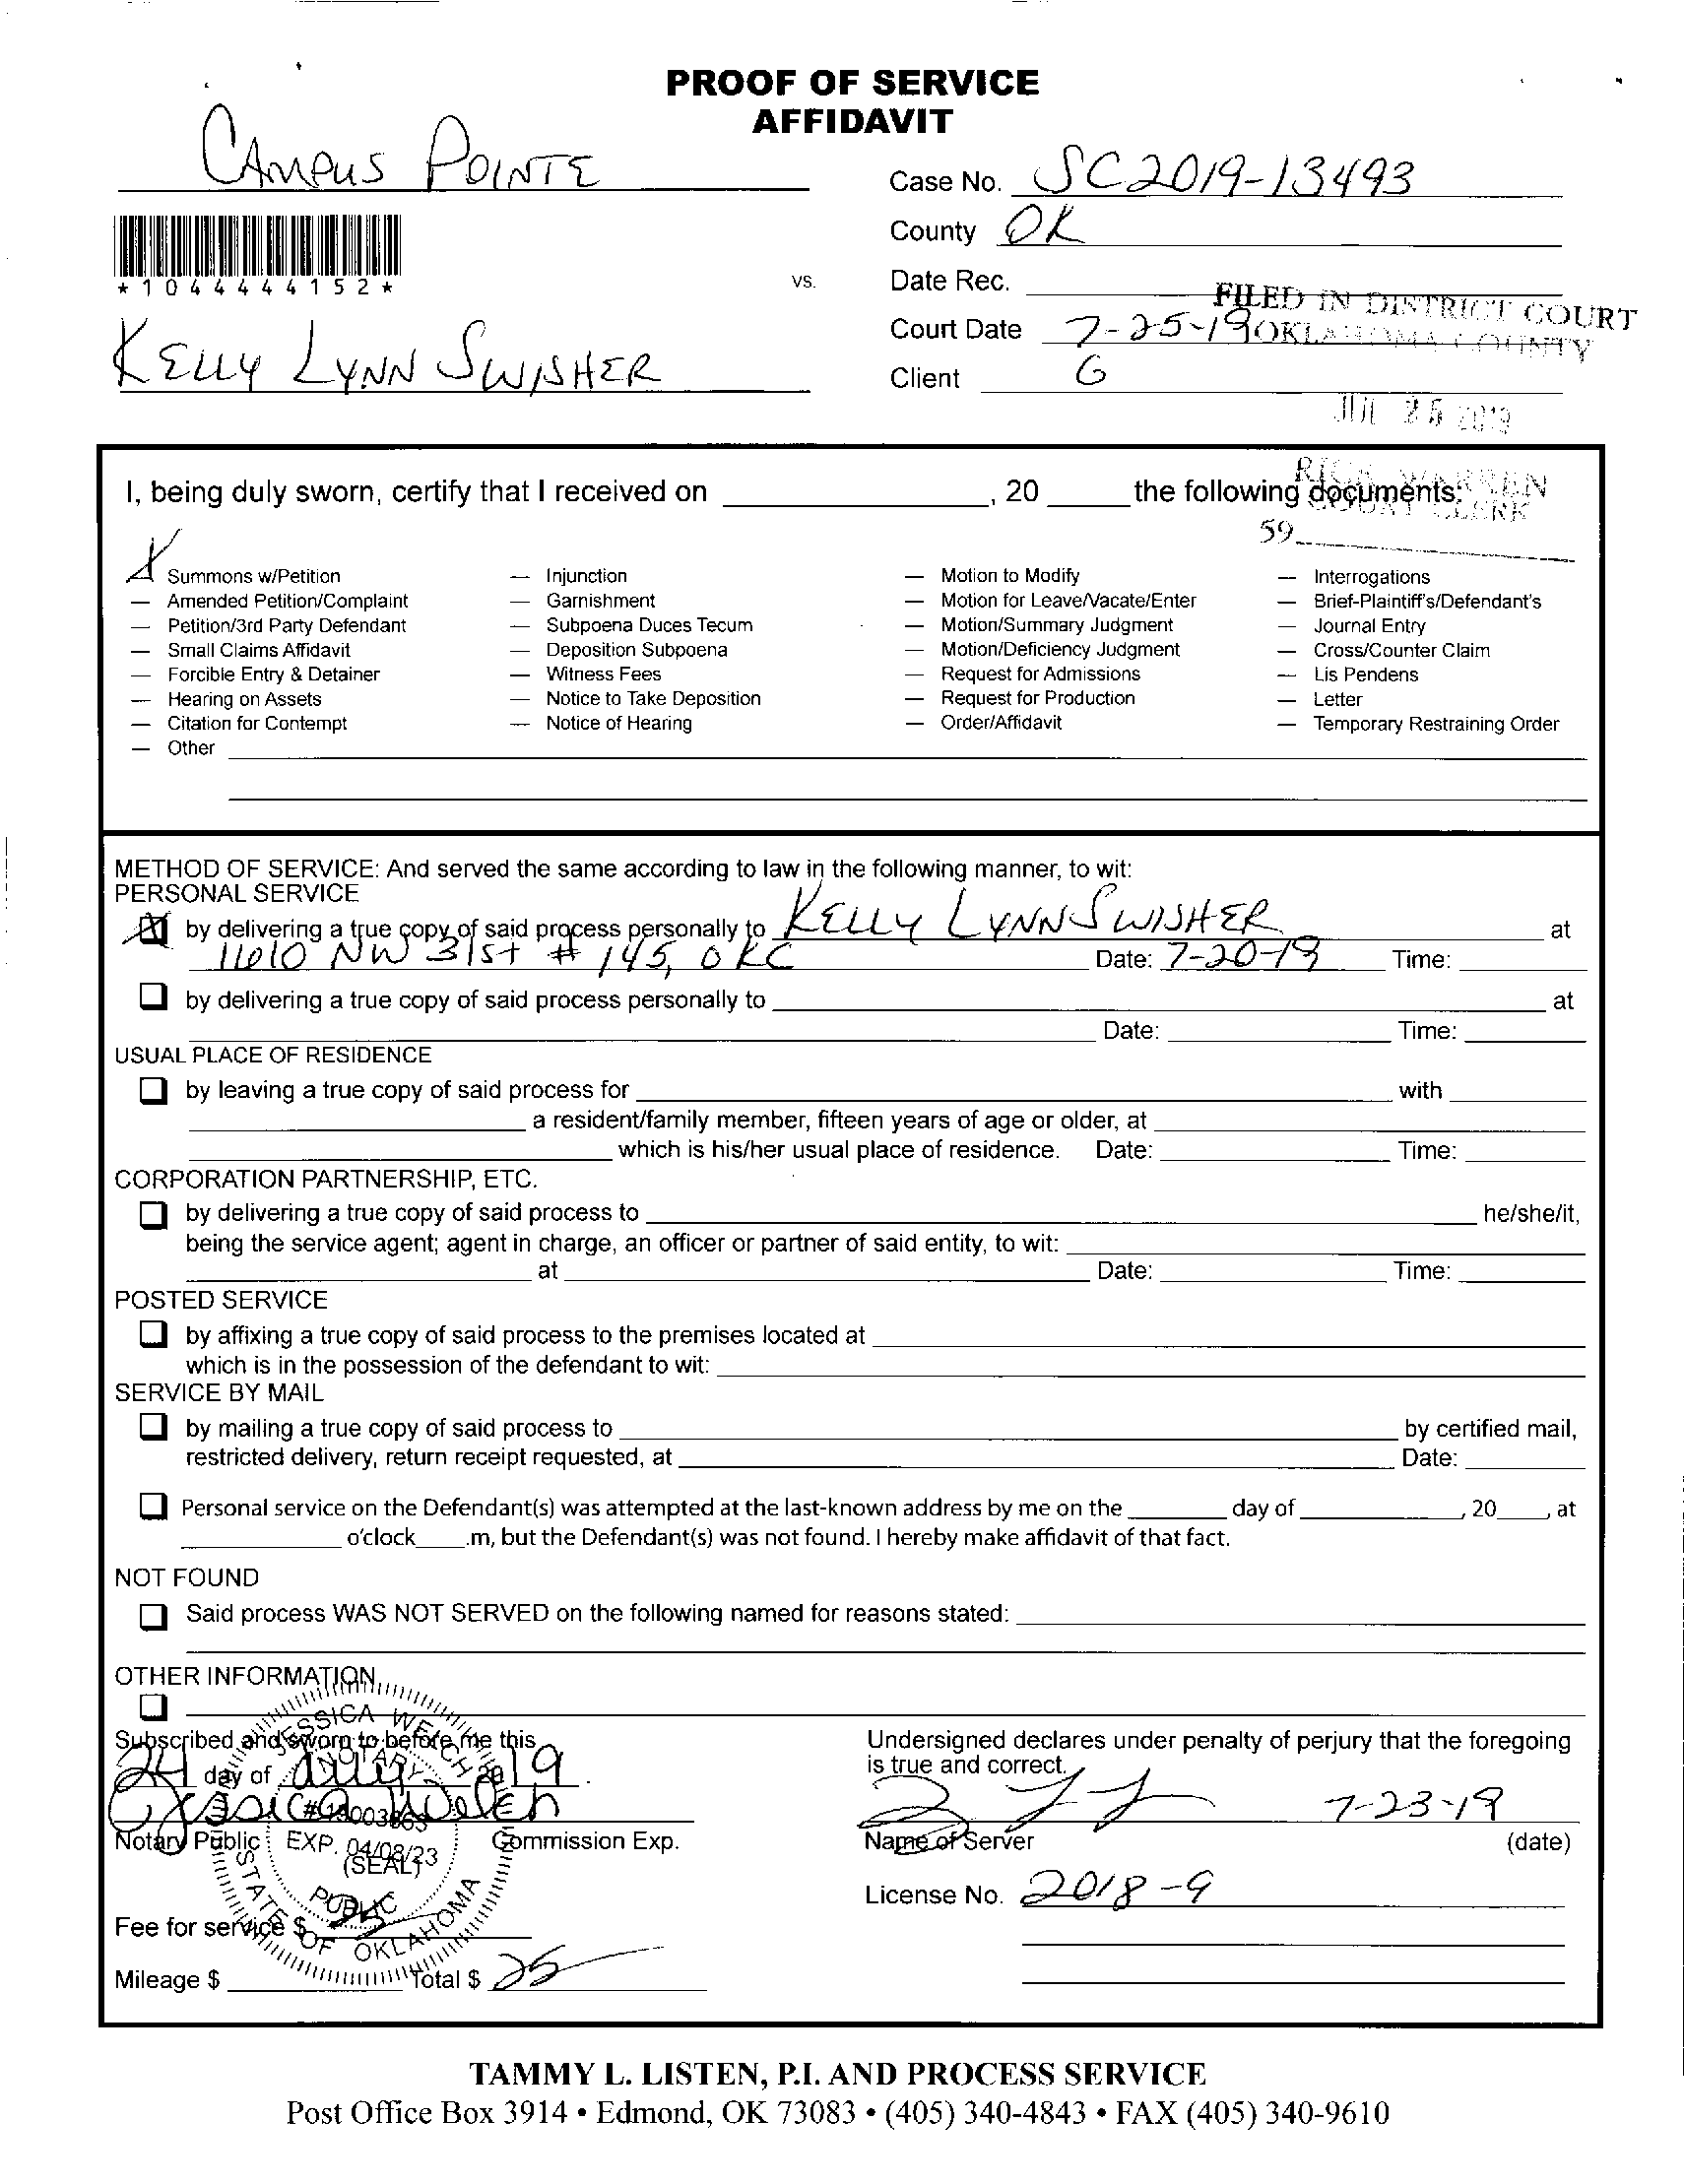 PROOF OF SERVICE
AFFIDAVIT
CAMPUS POINTE
Case No. SC2019-13493
County OK
*1044444152*
vs.
Date Rec.
FILED IN DISTRICT COURT
OKLAHOMA COUNTY
Court Date 7-25-19
KELLY LYNN SWISHER
Client G
JUL 25 2019
RICK WARREN
COURT CLERK
59
I, being duly sworn, certify that I received on , 20 the following documents:
X Summons w/Petition
— Amended Petition/Complaint
— Petition/3rd Party Defendant
— Small Claims Affidavit
— Forcible Entry & Detainer
— Hearing on Assets
— Citation for Contempt
— Other
— Injunction
— Garnishment
— Subpoena Duces Tecum
— Deposition Subpoena
— Witness Fees
— Notice to Take Deposition
— Notice of Hearing
— Motion to Modify
— Motion for Leave/Vacate/Enter
— Motion/Summary Judgment
— Motion/Deficiency Judgment
— Request for Admissions
— Request for Production
— Order/Affidavit
— Interrogations
— Brief-Plaintiff's/Defendant's
— Journal Entry
— Cross/Counter Claim
— Lis Pendens
— Letter
— Temporary Restraining Order
METHOD OF SERVICE: And served the same according to law in the following manner, to wit:
PERSONAL SERVICE
X by delivering a true copy of said process personally to KELLY LYNN SWISHER at
1610 NW 31st # 145, OKC Date: 7-20-19 Time:
by delivering a true copy of said process personally to at
Date: Time:
USUAL PLACE OF RESIDENCE
by leaving a true copy of said process for with
a resident/family member, fifteen years of age or older, at
which is his/her usual place of residence. Date: Time:
CORPORATION PARTNERSHIP, ETC.
by delivering a true copy of said process to he/she/it,
being the service agent; agent in charge, an officer or partner of said entity, to wit:
at Date: Time:
POSTED SERVICE
by affixing a true copy of said process to the premises located at
which is in the possession of the defendant to wit:
SERVICE BY MAIL
by mailing a true copy of said process to by certified mail,
restricted delivery, return receipt requested, at Date:
Personal service on the Defendant(s) was attempted at the last-known address by me on the day of , 20 , at
o'clock .m, but the Defendant(s) was not found. I hereby make affidavit of that fact.
NOT FOUND
Said process WAS NOT SERVED on the following named for reasons stated:
OTHER INFORMATION
Subscribed and sworn to before me this
24 day of July 2019
Jessica Welch
Notary Public (SEAL) Commission Exp.
JESSICA WELCH
NOTARY
EXP. 04/08/23
PUBLIC
STATE OF OKLAHOMA
Fee for service $ 25
Mileage $ Total $ 25
Undersigned declares under penalty of perjury that the foregoing
is true and correct.
7-23-19
Name of Server (date)
License No. 2018-9
TAMMY L. LISTEN, P.I. AND PROCESS SERVICE
Post Office Box 3914 • Edmond, OK 73083 • (405) 340-4843 • FAX (405) 340-9610